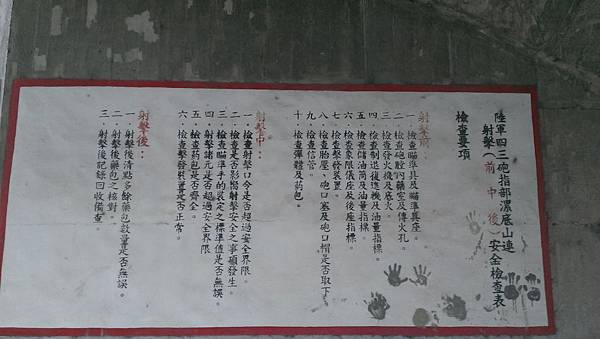 陸軍四三砲指部漯底山連
射擊（前、中、後）安全檢查表
檢查要項
射擊前：
一、檢查瞄準具及瞄準具座。
二、檢查砲膛內藥室及傳火孔。
三、檢查發火機及底火。
四、檢查制退復進機及油量指標。
五、檢查儲油筒及油量指標。
六、檢查象限儀座及後座指標。
七、檢查擊發裝置。
八、檢查胎壓、砲口塞及砲口帽是否取下。
九、檢查信管。
十、檢查彈體及药包。
射擊中：
一、檢查射擊口令是否超過安全界限。
二、檢查是否影响射擊安全之事項發生。
三、檢查瞄準手的裝定之標準值是否無誤。
四、射擊諸元是否超過安全界限
五、檢查药包是否齊全。
六、檢查擊發裝置是否正常。
射擊後：
一、射擊後清點多餘藥包數量是否無誤。
二、射擊後藥包之核對。
三、射擊後記錄回收備查。